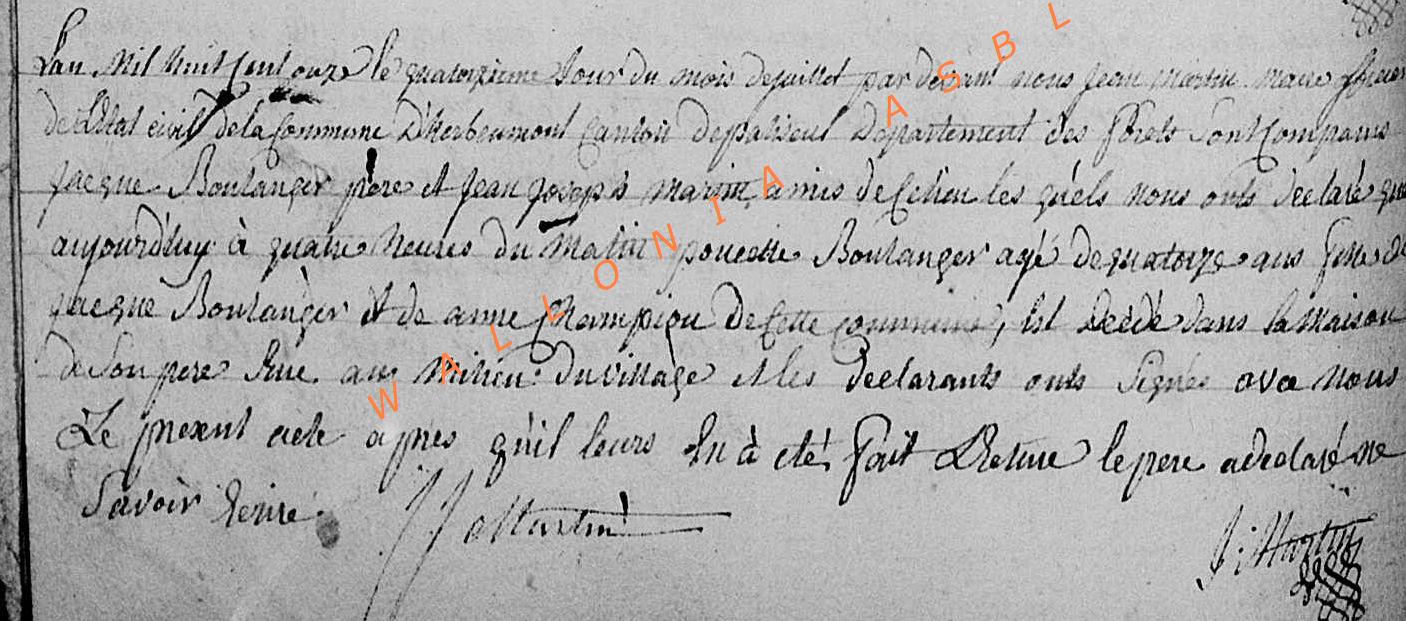 L'an Mil huit Cent onze le quatorzieme Jour du mois de juillet par devant nous Jean Martin maire officier
de L'Etat civil de la Commune D'herbeumont Canton de paliseul Département des forets Sont Comparus
Jacque Boulanger père et Jean Joseph Martin amis de Ce lieu les quèls nous onts declaré que
aujourd'huy à quatre heures du Matin poncette Boulanger agé de quatorze ans fille de
Jacque Boulanger et de anne Champion De Cette commune, Est Decédé dans la Maison
de Son pere Rue au Milieu du village et les declarants onts Signés avec nous
Le present acte apres qu'il leurs En à été fait Lecture le pere a declaré ne
Savoir Ecrire.
JJ Martin
J: Martin
WALLONIA ASBL